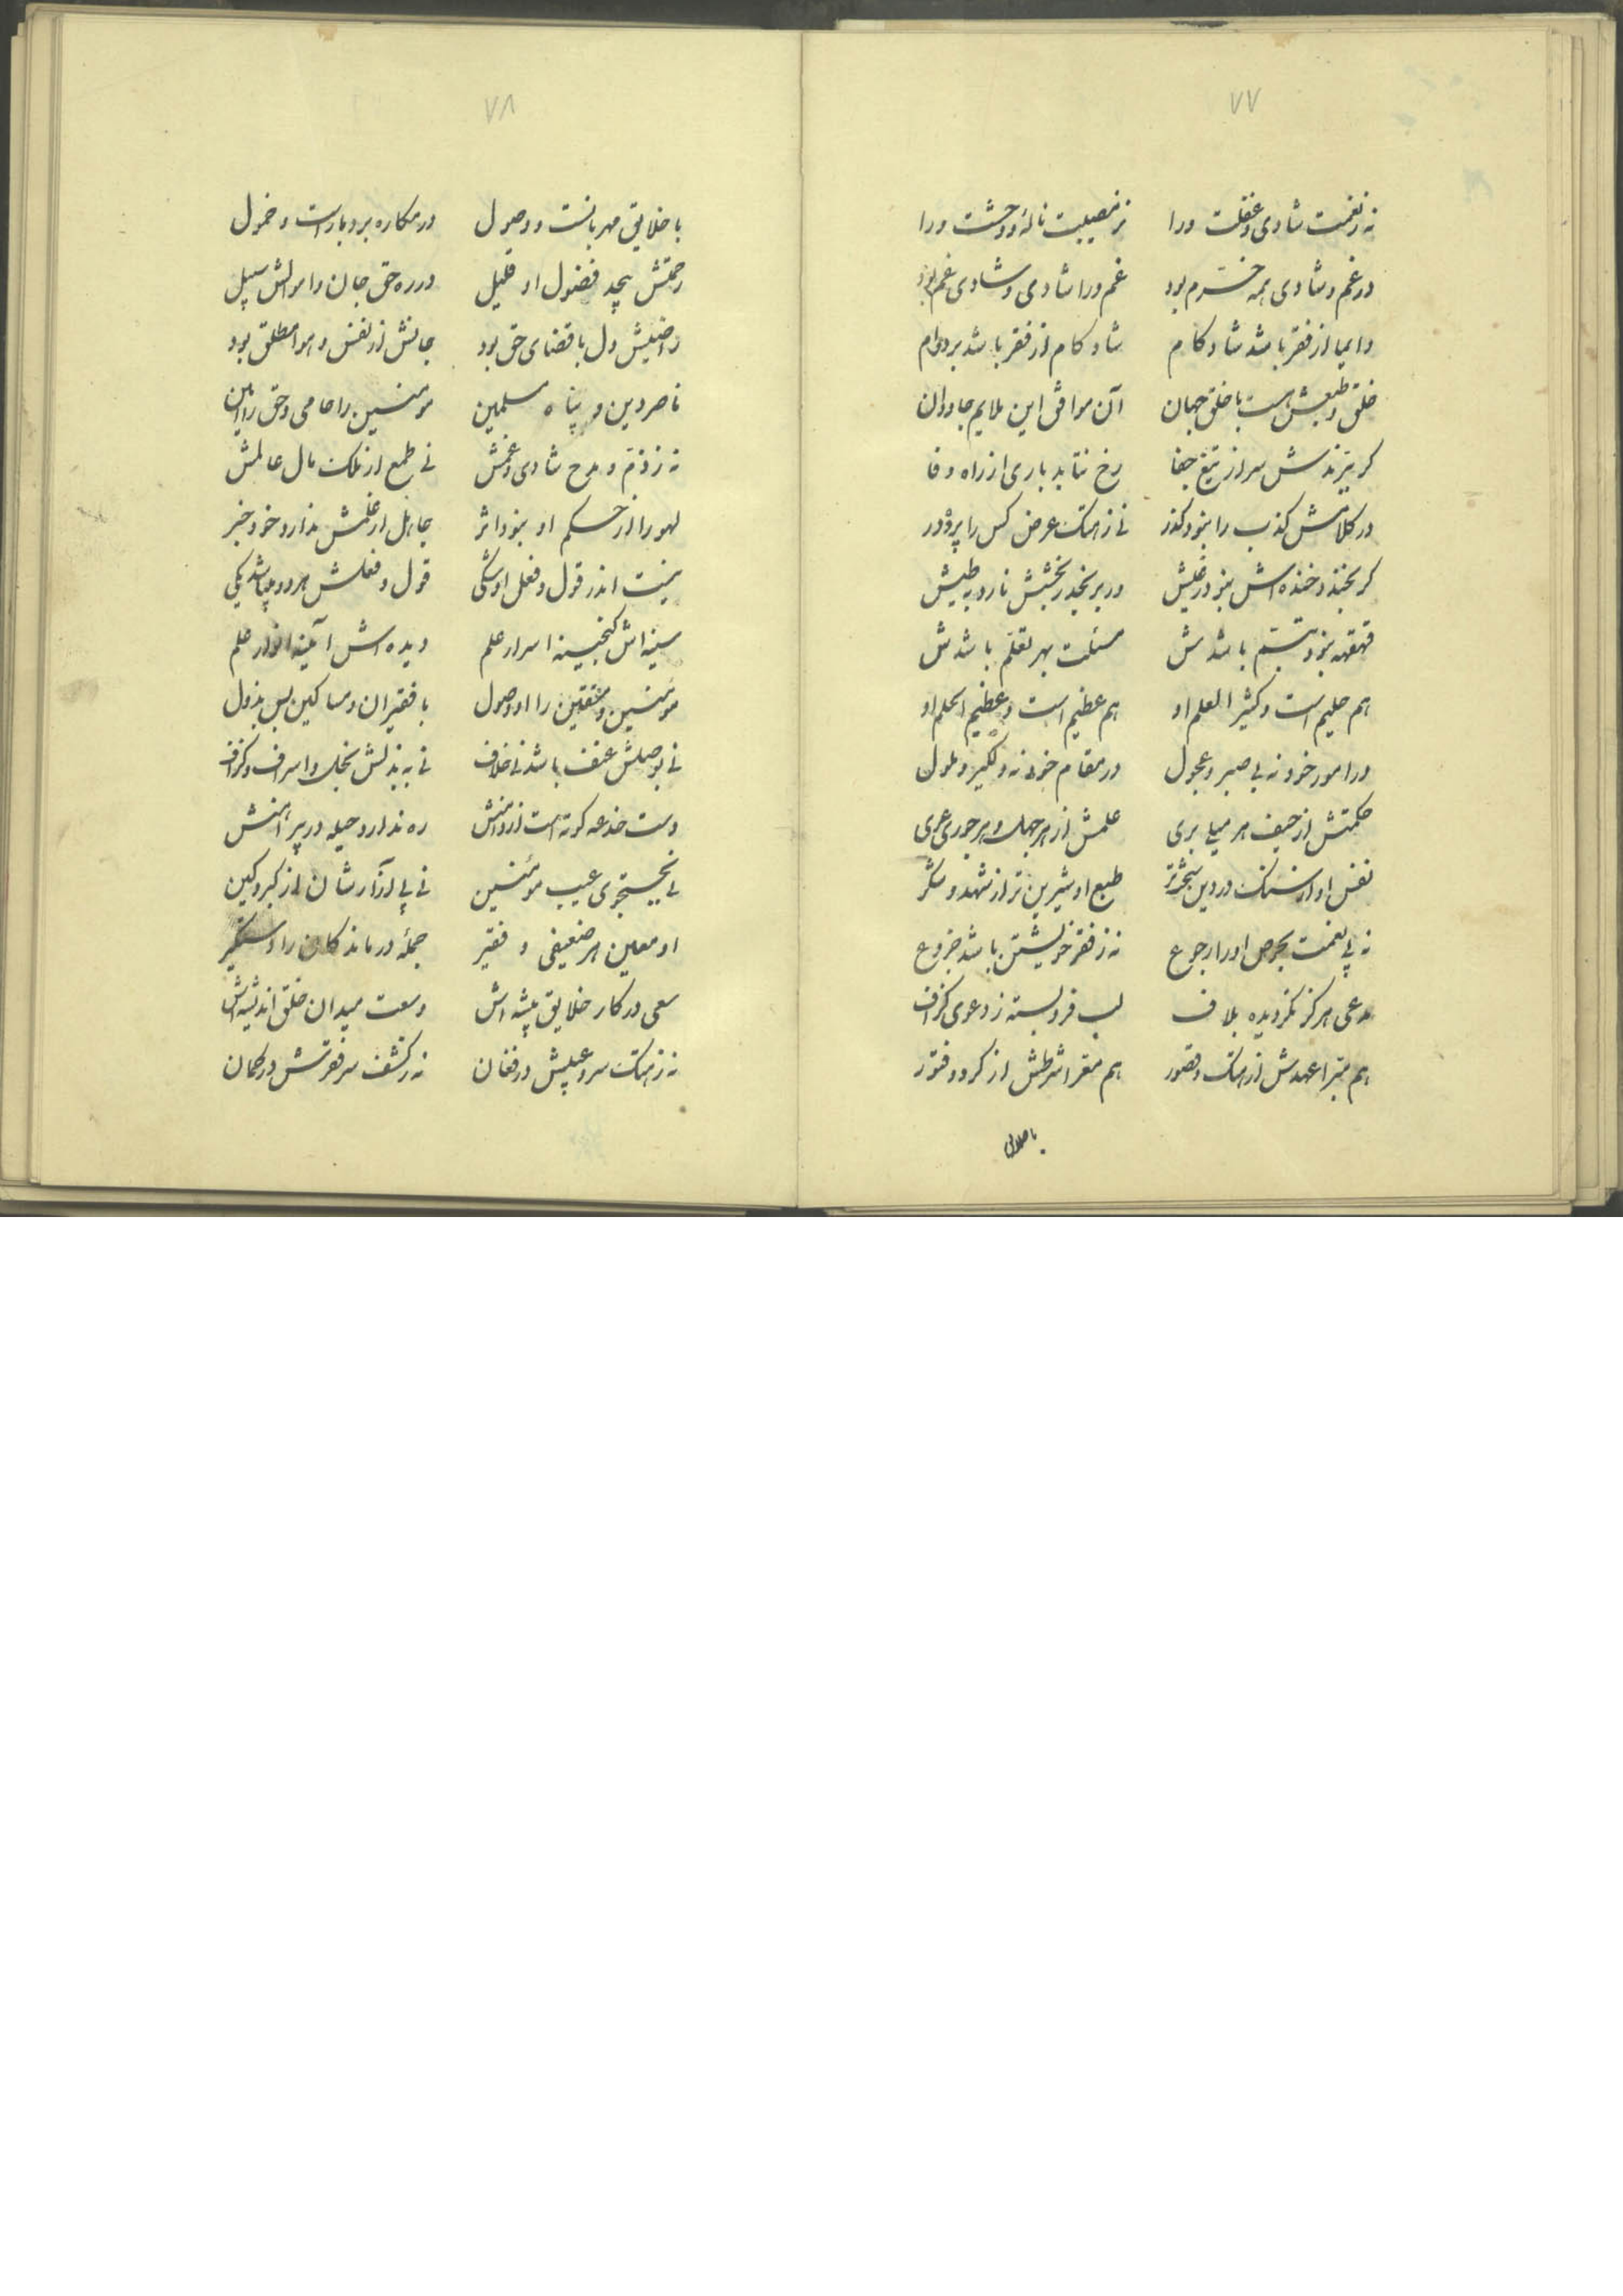 ۷۷
نه ز نعمت شادی و غفلت ورا نز مصیبت ناله و وحشت ورا
در غم و شادی همه خرم بود غم ورا شادی و شادی غم بود
دایما از فقر باشد شاد کام شاد کام از فقر باشد بر دوام
خلق و طبعش هست با خلق جهان آن موافق این ملایم جاودان
کر بتیزندش سر از تیغ جفا رخ نتابد باری از راه وفا
در کلامش کذب را نبود کذر نی ز هتک عرض کس را پرده در
کر بخندد خنده اش نبود ز غیش ور برنجد رنجشش نارد به طیش
قهقهه نبود تبسم باشدش مسئلت بهر تعلم باشدش
هم حلیم است و کثیر العلم او هم عظیم است و عظیم الحلم او
در امور خود نه بی صبر و عجول در مقام خود نه دلکیر و ملول
حکمتش از حیف هر میلی بری علمش از هر جهل و هر جوری عری
نفس او از سنک در دین سخت‌تر طبع او شیرین تر از شهد و شکر
نه پی نعمت بحرص او را رجوع نه ز فقر خویشتن باشد جزوع
مدعی هرکز نکردیده بلاف لب فرو بسته ز دعوی کزاف
هم مبرا عهدش از هتک و قصور هم معرا شرطش از کرد و فتور
با خلایق
۷۸
با خلایق مهربانست و وصول در مکاره بردبار است و خمول
رحمتش بیحد فضول او قلیل در ره حق جان و اموالش سبیل
راضیش دل با قضای حق بود جانش از نفس و هوا مطلق بود
ناصر دین و پناه مسلمین مومنین را حامی و حق را امین
نه ز ذم و مدح شادی و غمش نی طمع از ملک مال عالمش
لهو را از حکم او نبود اثر جاهل از علمش ندارد خود خبر
نیست اندر قول و فعل او شکی قول و فعلش هر دو میباشد یکی
سینه اش کنجینه اسرار علم دیده اش آئینه انوار علم
مومنین و متقین را او وصول با فقیران و مساکین بس بذول
نی بوصلش عنف باشد نی خلاف نی به بذلش بخل و اسراف و کزاف
دست خدعه کوته است از دامنش ره ندارد حیله در پیراهنش
نی بجستجوی عیب مومنین نی پی آزارشان از کبر و کین
او معین هر ضعیفی و فقیر جمله درماندکان را دستکیر
سعی در کار خلایق پیشه اش وسعت میدان خلق اندیشه اش
نه ز هتک سر و عیبش در فغان نه ز کشف سر فقرش در کمان